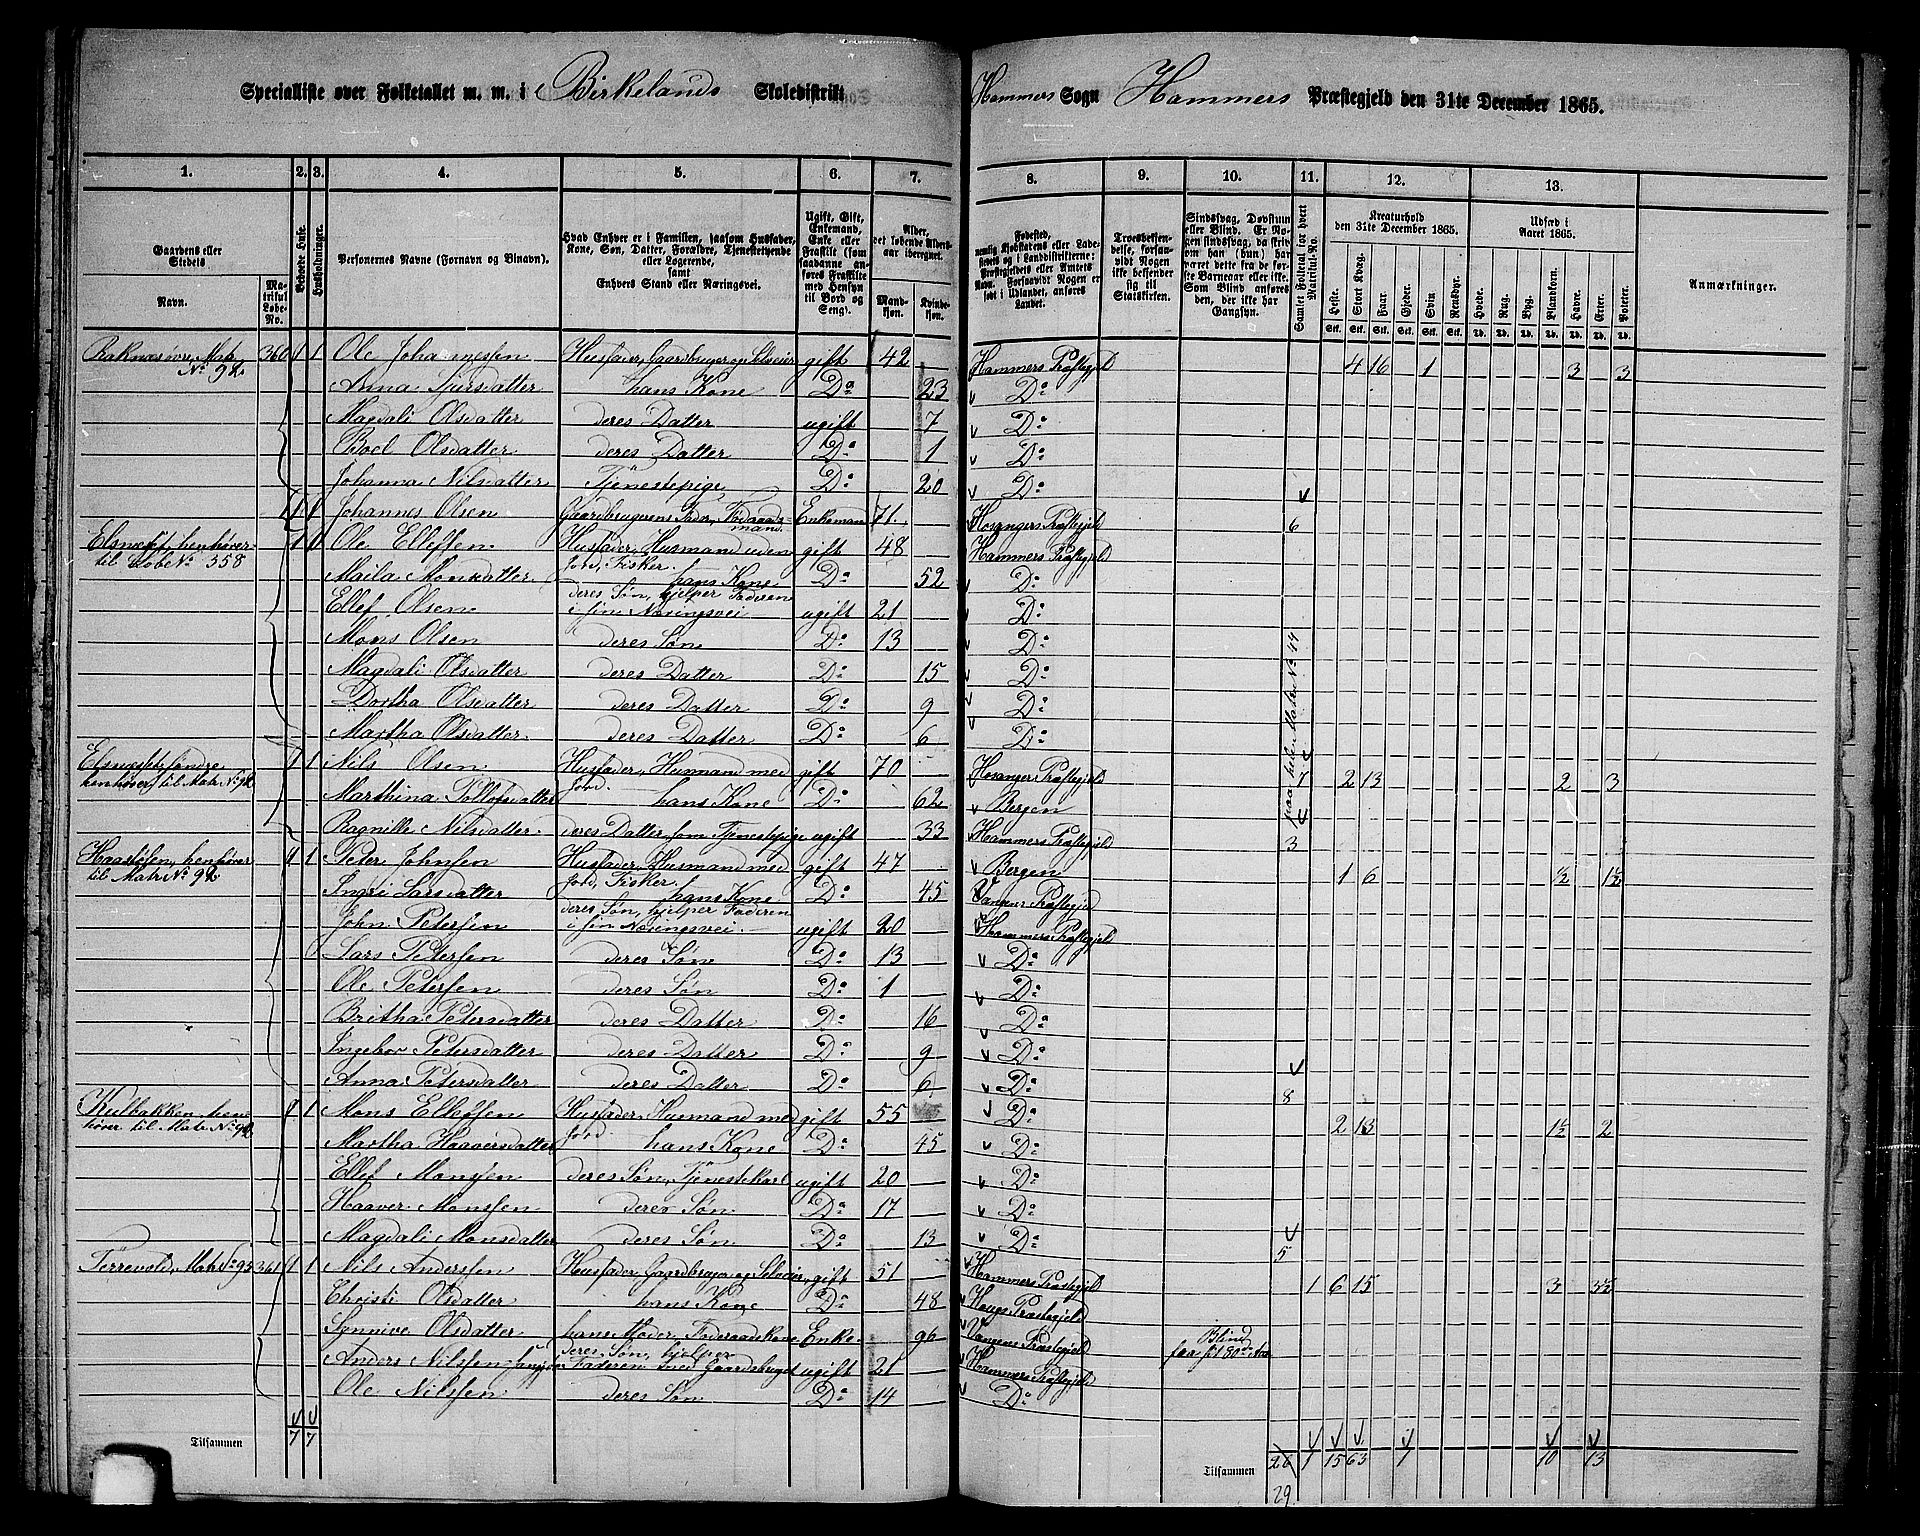 Specialliste over Folketallet m. m. i Birkelands Skoledistrikt Hammers Sogn Hammers Præstegjeld den 31te December 1865.
1. 2. 3. 4. 5. 6. 7. 8. 9. 10. 11. 12. 13.
Gaardens eller Stedets Navn. Matrikul Løbe-No. Beboede Huse. Husholdninger. Personernes Navne (Fornavn og Binavn). Hvad Enhver er i Familien, saasom Husfader, Kone, Søn, Datter, Forældre, Tjenestetyende eller Logerende, samt Enhvers Stand eller Næringsvei. Ugift, Gift, Enkemand, Enke eller Fraskilt Alder, det løbende Alders-aar iberegnet. Mandkøn. Kvindekøn.
Fødested, Troesbekjendelse, forsaavidt Nogen ikke bekjender sig til Statskirken. Sindssvag, Døvstum eller Blind. Samlet Folketal for hvert Matrikul-No. Kreaturhold den 31te December 1865. Heste. Stort Kvæg. Faar. Gjeder. Svin. Rensdyr. Udsæd i Aaret 1865. Hvede. Rug. Byg. Blandkorn. Havre. Erter. Poteter. Anmærkninger.
Raknæs øvre, Matr No 92. 360 1 1 Ole Johannessen Husfader, Gaardbruger og Selveier gift 42 Hammers Præstegjeld 4 16 1 3 3
Anna Sjursdatter hans Kone Do 23 Do
Magdali Olsdatter deres Datter ugift 7 Do
Boel Olsdatter deres Datter Do 1 Do
Johanna Nilsdatter Tjenestepige Do 20 Do
1 0 Johannes Olsen Gaardbrugerens Fader, Føderaadsmand. Enkemand 71. Hosangers Præstegjeld 6
Elsnæset, henhører til Løbe No 358 1 0 Ole Elleffen Husfader, Husmand uden Jord, Fisker. gift 48 Hammers Præstegjeld
Maila Monsdatter hans Kone Do 52 Do
Ellef Olsen deres Søn, hjelper Faderen i sin Næringsvei ugift 21 Do
Mons Olsen deres Søn Do 13 Do
Magdali Olsdatter deres Datter Do 15 Do
Dortha Olsdatter deres Datter Do 9 Do
Martha Olsdatter deres Datter Do 6 Do
Elsnæset søndre henhører til Matr No 92 1 1 Nils Olsen Husfader, Husmand med Jord. gift 70 Hosangers Præstegjeld 7 2 13 2 3
Marthina Tollefsdatter hans Kone Do 62 Bergen
Ragnille Nilsdatter deres Datter, som Tjenestepige ugift 33 Hammers Præstegjeld 3
Haasteen, henhører til Matr No 92 1 1 Peter Johnsen Husfader, Husmand med Jord, Fisker. gift 47 Bergen 1 6 1/2 1 1/2
Ingri Larsdatter hans Kone Do 45 Vangens Præstegjeld
John Petersen deres Søn, hjelper Faderen i sin Næringsvei. ugift 20 Hammers Præstegjeld
Lars Petersen deres Søn Do 13 Do
Ole Petersen deres Søn Do 1 Do
Britha Petersdatter deres Datter Do 16 Do
Ingebor Petersdatter deres Datter Do 9 Do
Anna Petersdatter deres Datter Do 6 Do 8
Kulbakken, henhører til Matr No 92 1 1 Mons Elleffsen Husfader, Husmand med Jord gift 55 Do 2 13 1 1/2 2
Martha Haaversdatter hans Kone Do 45 Do
Ellef Monssen deres Søn, Tjenestekarl ugift 20 Do
Haaver Monssen deres Søn Do 17 Do
Magdali Monsdatter deres Søn Do 13 Do 5
Terrevold, Matr No 93 361 1 1 Nils Anderssen Husfader, Gaardbruger og Selveier gift 51 Hammers Præstegjeld 1 6 15 3 3 1/2
Christi Olsdatter hans Kone Do 48 Hougs Præstegjeld
Synnive Olsdatter hans Moder, Føderaadskone Enke 96 Vangens Præstegjeld Blind
Anders Nilssen deres Søn, hjelper Faderen med Gaardsbruget ugift 21 Hammers Præstegjeld
Ole Nilssen deres Søn Do 14 Do
Tilsammen 7 7 Tilsammen 26 1 15 63 1 10 13
29